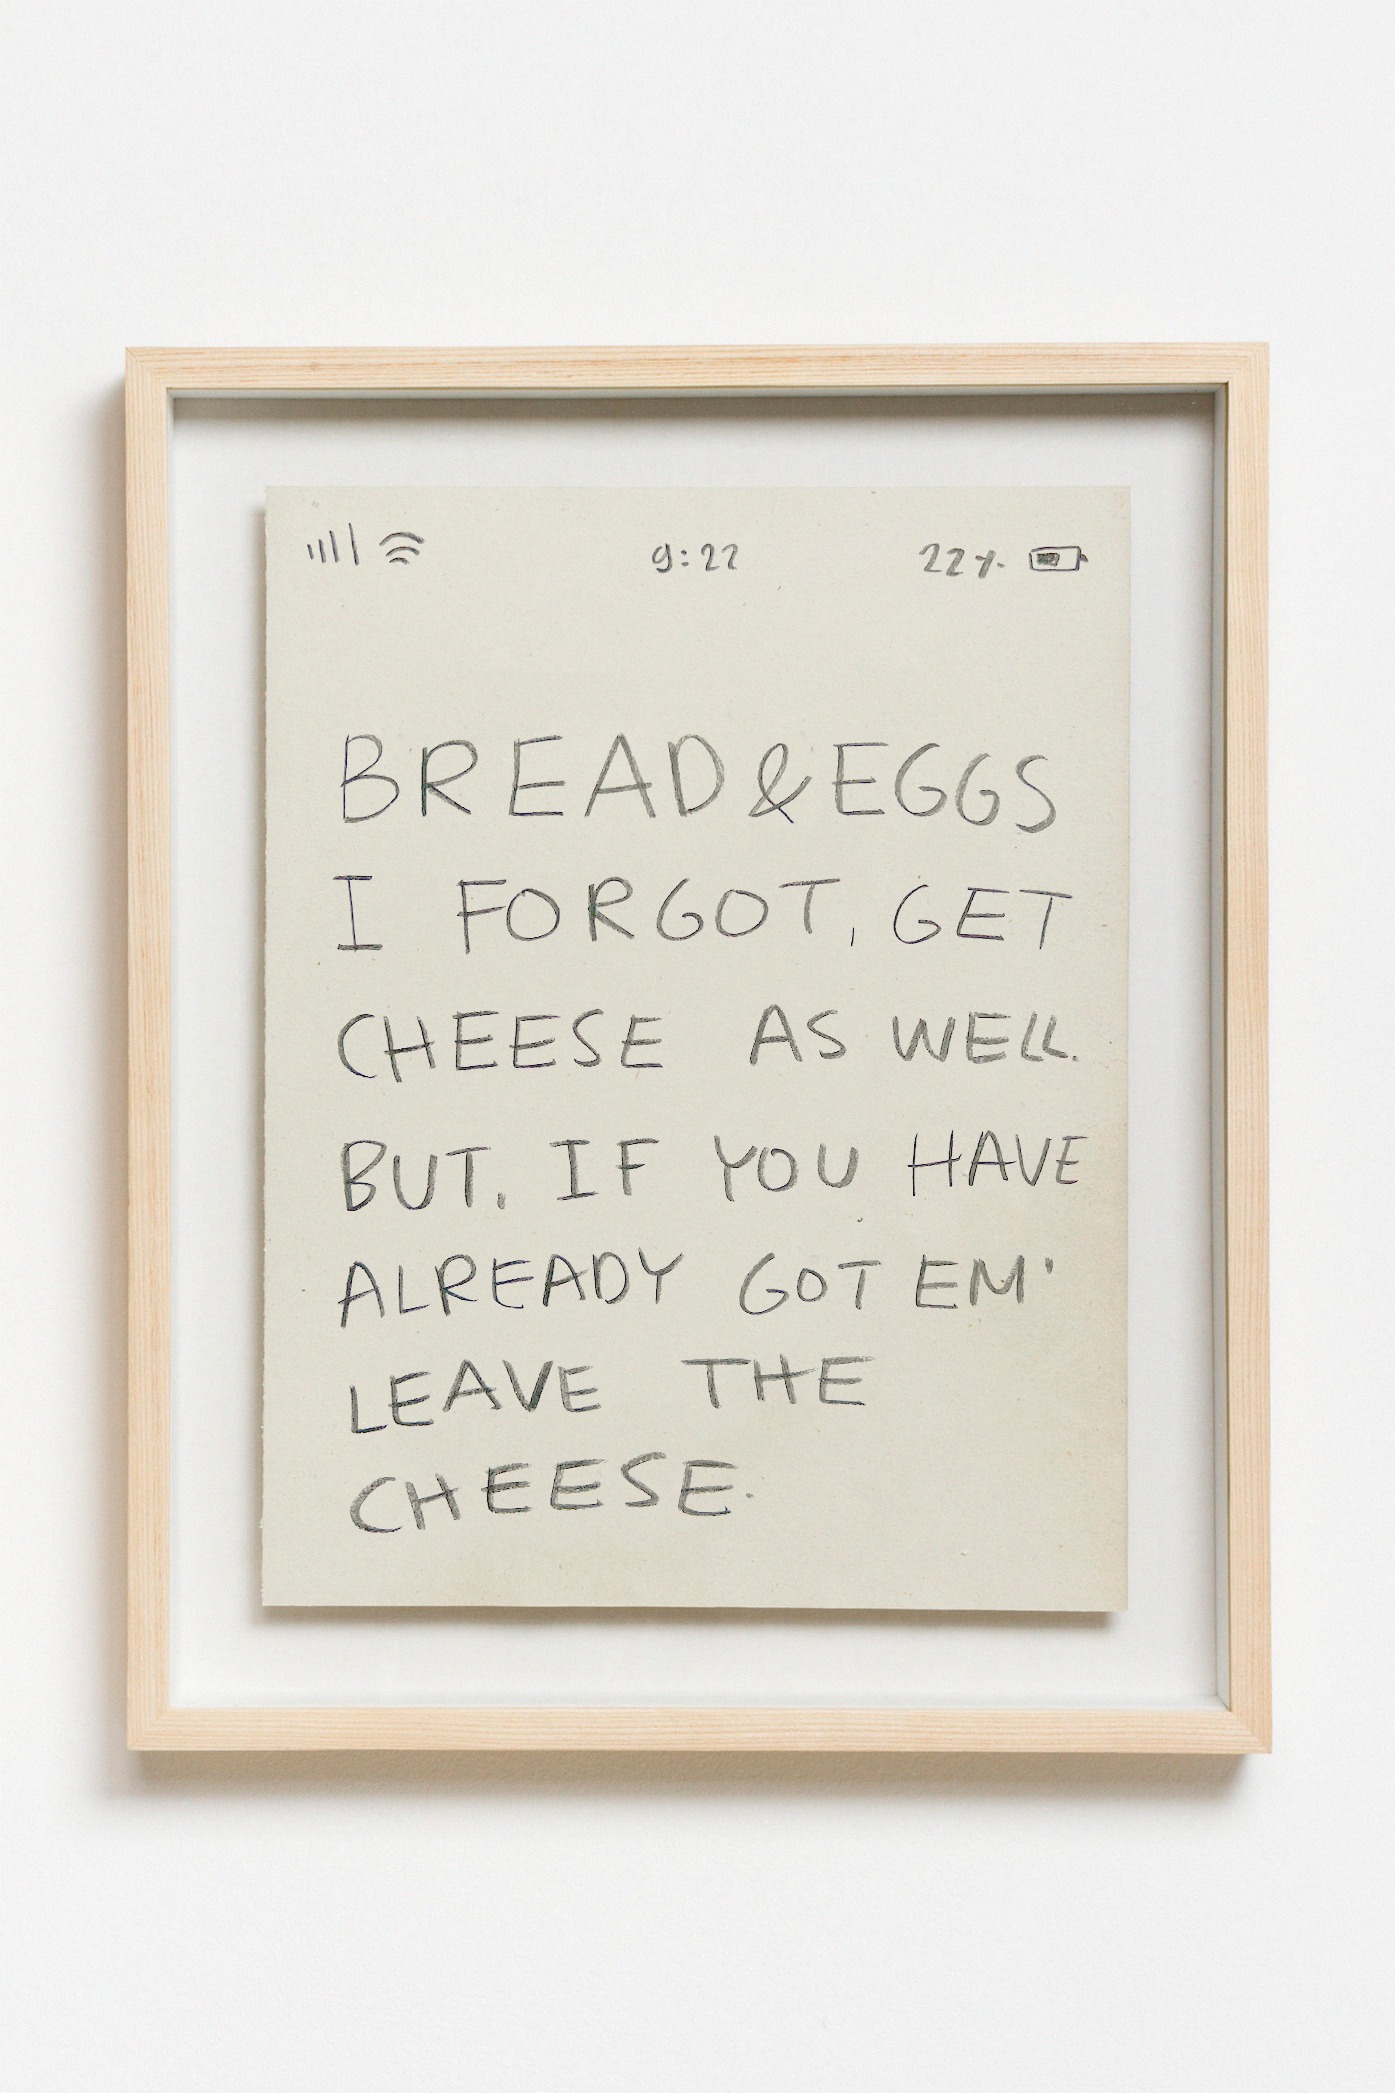 9:22 22%
BREAD & EGGS
I FORGOT, GET
CHEESE AS WELL.
BUT, IF YOU HAVE
ALREADY GOT EM'
LEAVE THE
CHEESE.